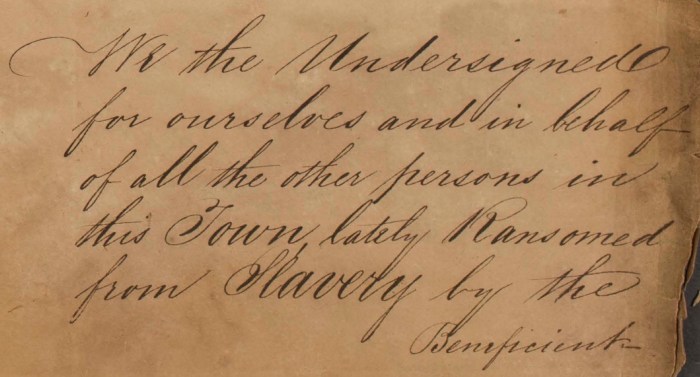 We the Undersigned
for ourselves and in behalf
of all the other persons in
this Town, lately Ransomed
from Slavery by the
Beneficient